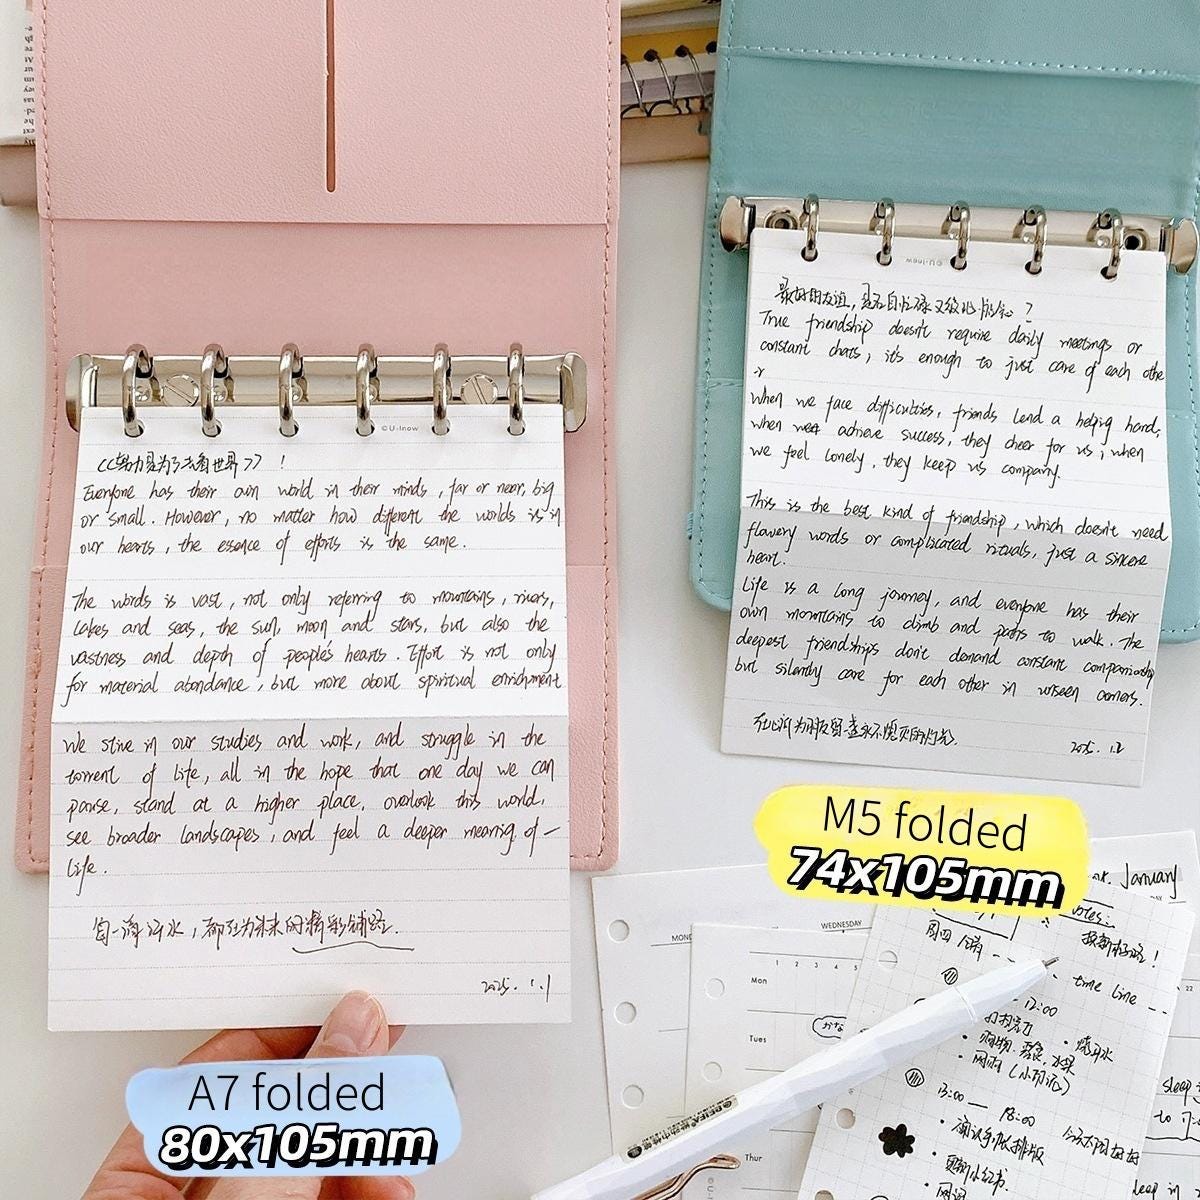 ©U-Inow
<<努力是为了去看世界>> !
Everyone has their own world in their minds, far or near, big
or small. However, no matter how different the worlds is in
our hearts, the essence of efforts is the same.
The words is vast, not only referring to mountains, rivers,
lakes and seas, the sun, moon and stars, but also the
vastness and depth of people's hearts. Effort is not only
for material abondance, but more about spiritual enrichment
We strive in our studies and work, and struggle in the
torrent of life, all in the hope that one day we can
pause, stand at a higher place, overlook this world,
see broader landscapes, and feel a deeper meaning of —
life.
每一滴汗水，都在为未来的精彩铺路.
2025. 1.1
A7 folded
80x105mm
©U-Inow
True friendship doesn't require daily meetings or
constant chats, it's enough to just care of each othe
r
when we face difficulties, friends lend a helping hand,
when we achieve success, they cheer for us, when
we feel lonely, they keep us company.
This is the best kind of friendship, which doesn't need
flowery words or complicated rituals, just a sincere
heart.
Life is a long journey, and everyone has their
own mountains to climb and paths to walk. The
deepest friendships don't demand constant companionship
but silently care for each other in unseen corners.
2025. 1.2
M5 folded
74x105mm
January
Notes:
WEDNESDAY
Mon
1 2 3 4 5
22
Tues
Thur
time line
12:00
13:00 — 18:00
购物